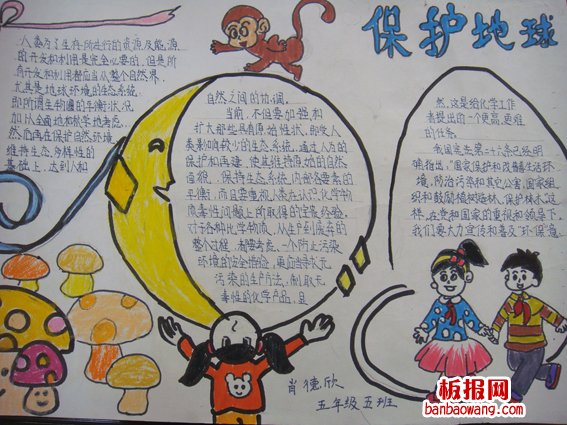 保护地球
人类为了生存所进行的资源及能源
的开发和利用是完全必要的，但是所
有开发和利用都应当从整个自然界，
尤其是地球环境的生态系统，
即所谓生物圈的平衡状况
加以全面地权衡地考虑。
然而再在保护自然环境
维持生态，多样性的
基础上，达到人和
自然之间的协调。
当前，不但要加强和
扩大那些具有原始性状，即受人
类影响较少的生态系统，通过人为的
保护和再建，使其维持原地的自然
面貌，保持生态系统内部各要素的
平衡；而且要重视人类在认识化学物
质毒性问题上所取得的宝贵经验。
对于各种化学物质，从生产到废弃的
整个过程，都要考虑一个防止污染
环境的安全措施，更应当寻求无
污染的生产方法，制取无
毒性的化学产品，自
然，这是给化学工作
者提出的一个更高、更难
的任务。
我国宪法第二十六条已经明
确指出，“国家保护和改善生活环
境，防治污染和其它公害，国家组
织和鼓励植树造林，保护林木”这
样，在党和国家的重视和领导下。
我们要大力宣传和普及“环保”意
肖德欣
五年级五班
板报网
banbaowang.com